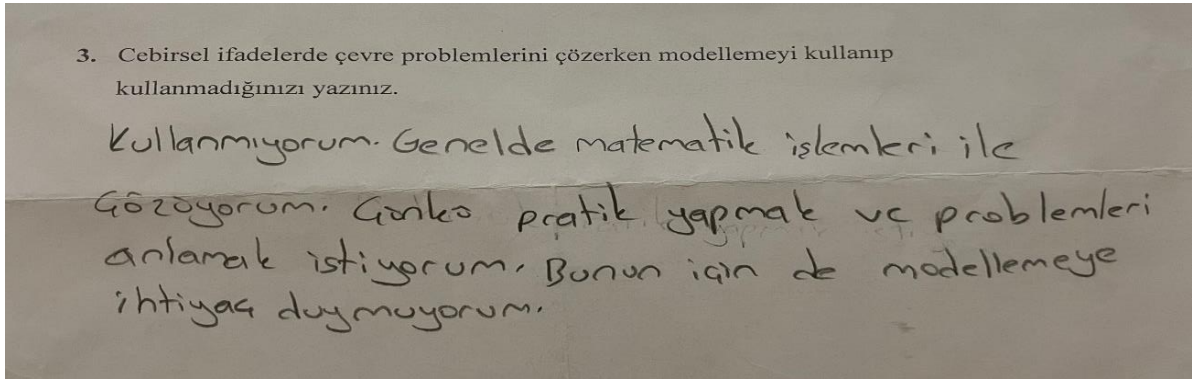 3. Cebirsel ifadelerde çevre problemlerini çözerken modellemeyi kullanıp
kullanmadığınızı yazınız.
Kullanmıyorum. Genelde matematik işlemleri ile
çözüyorum. Çünkü pratik yapmak ve problemleri
anlamak istiyorum. Bunun için de modellemeye
ihtiyaç duymuyorum.